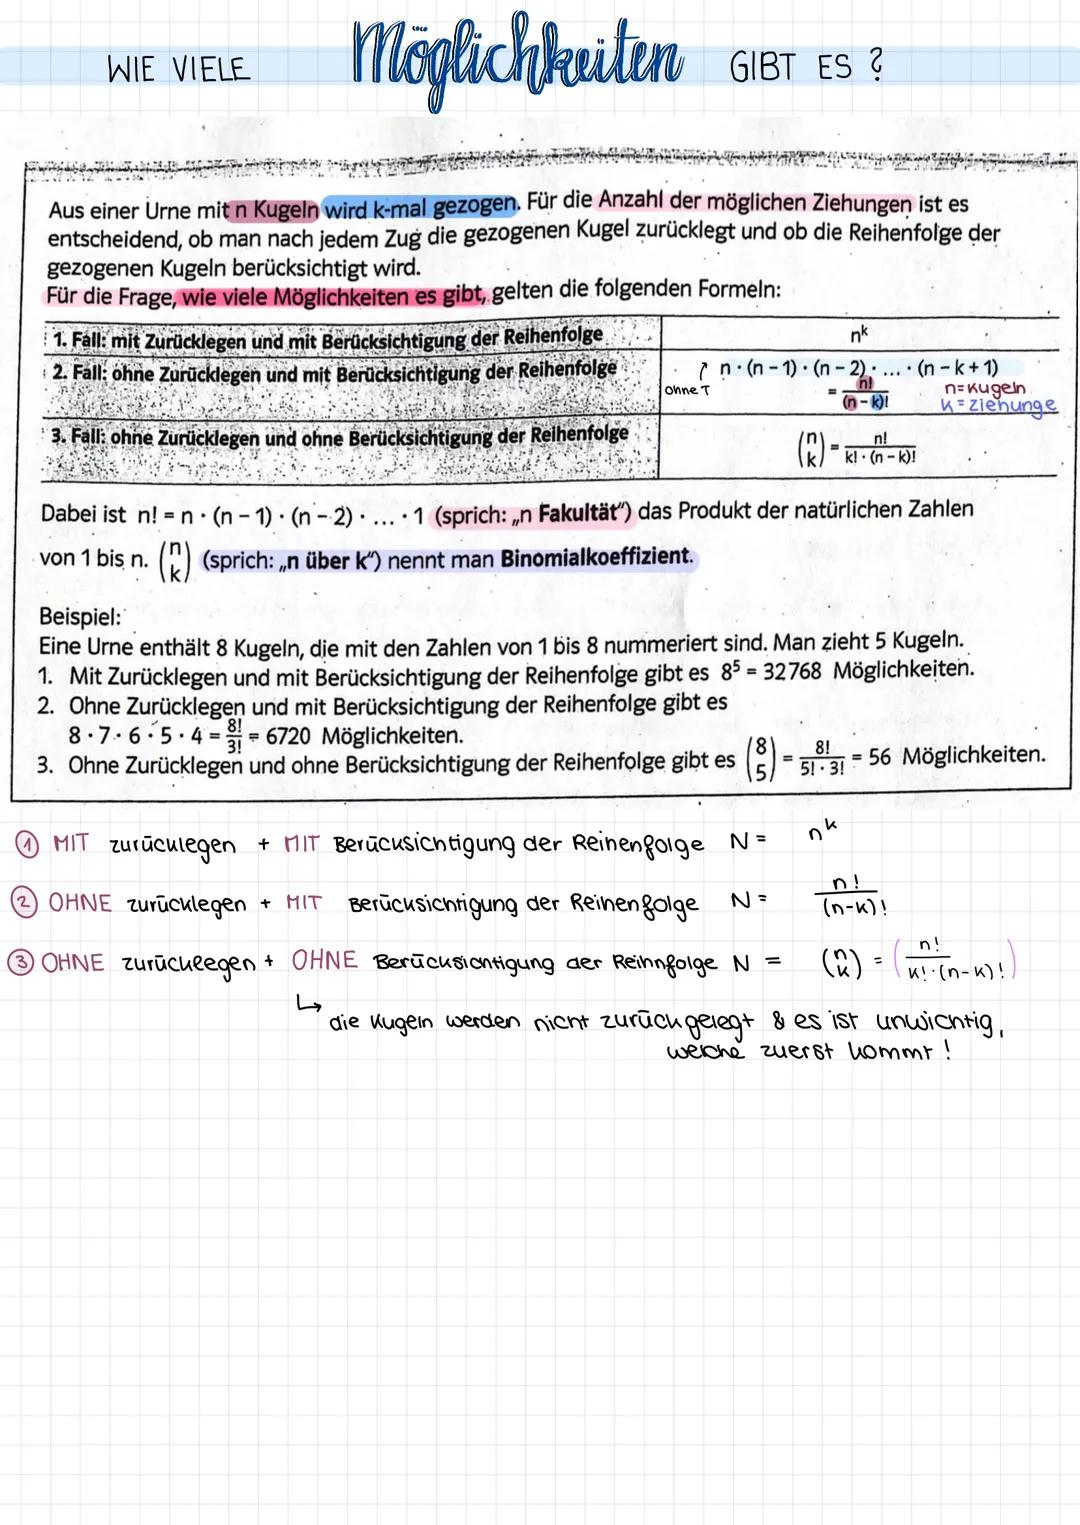 WIE VIELE Möglichkeiten GIBT ES ?
Aus einer Urne mit n Kugeln wird k-mal gezogen. Für die Anzahl der möglichen Ziehungen ist es
entscheidend, ob man nach jedem Zug die gezogenen Kugel zurücklegt und ob die Reihenfolge der
gezogenen Kugeln berücksichtigt wird.
Für die Frage, wie viele Möglichkeiten es gibt, gelten die folgenden Formeln:
1. Fall: mit Zurücklegen und mit Berücksichtigung der Reihenfolge n^k
2. Fall: ohne Zurücklegen und mit Berücksichtigung der Reihenfolge n · (n – 1) · (n – 2) · ... · (n – k + 1)
ohne T = n!/(n – k)! n=Kugeln
k=ziehunge
3. Fall: ohne Zurücklegen und ohne Berücksichtigung der Reihenfolge (n k) = n!/(k! · (n – k)!)
Dabei ist n! = n · (n – 1) · (n – 2) · ... · 1 (sprich: „n Fakultät“) das Produkt der natürlichen Zahlen
von 1 bis n. (n k) (sprich: „n über k“) nennt man Binomialkoeffizient.
Beispiel:
Eine Urne enthält 8 Kugeln, die mit den Zahlen von 1 bis 8 nummeriert sind. Man zieht 5 Kugeln.
1. Mit Zurücklegen und mit Berücksichtigung der Reihenfolge gibt es 8⁵ = 32768 Möglichkeiten.
2. Ohne Zurücklegen und mit Berücksichtigung der Reihenfolge gibt es
8 · 7 · 6 · 5 · 4 = 8!/3! = 6720 Möglichkeiten.
3. Ohne Zurücklegen und ohne Berücksichtigung der Reihenfolge gibt es (8 5) = 8!/(5! · 3!) = 56 Möglichkeiten.
① MIT zurücklegen + MIT Berücksichtigung der Reihenfolge N = n^k
② OHNE zurücklegen + MIT Berücksichtigung der Reihenfolge N = n!/(n-k)!
③ OHNE zurücklegen + OHNE Berücksichtigung der Reihnfolge N = (n k) = (n!/(k!·(n-k)!))
↳ die Kugeln werden nicht zurückgelegt & es ist unwichtig,
welche zuerst kommt !